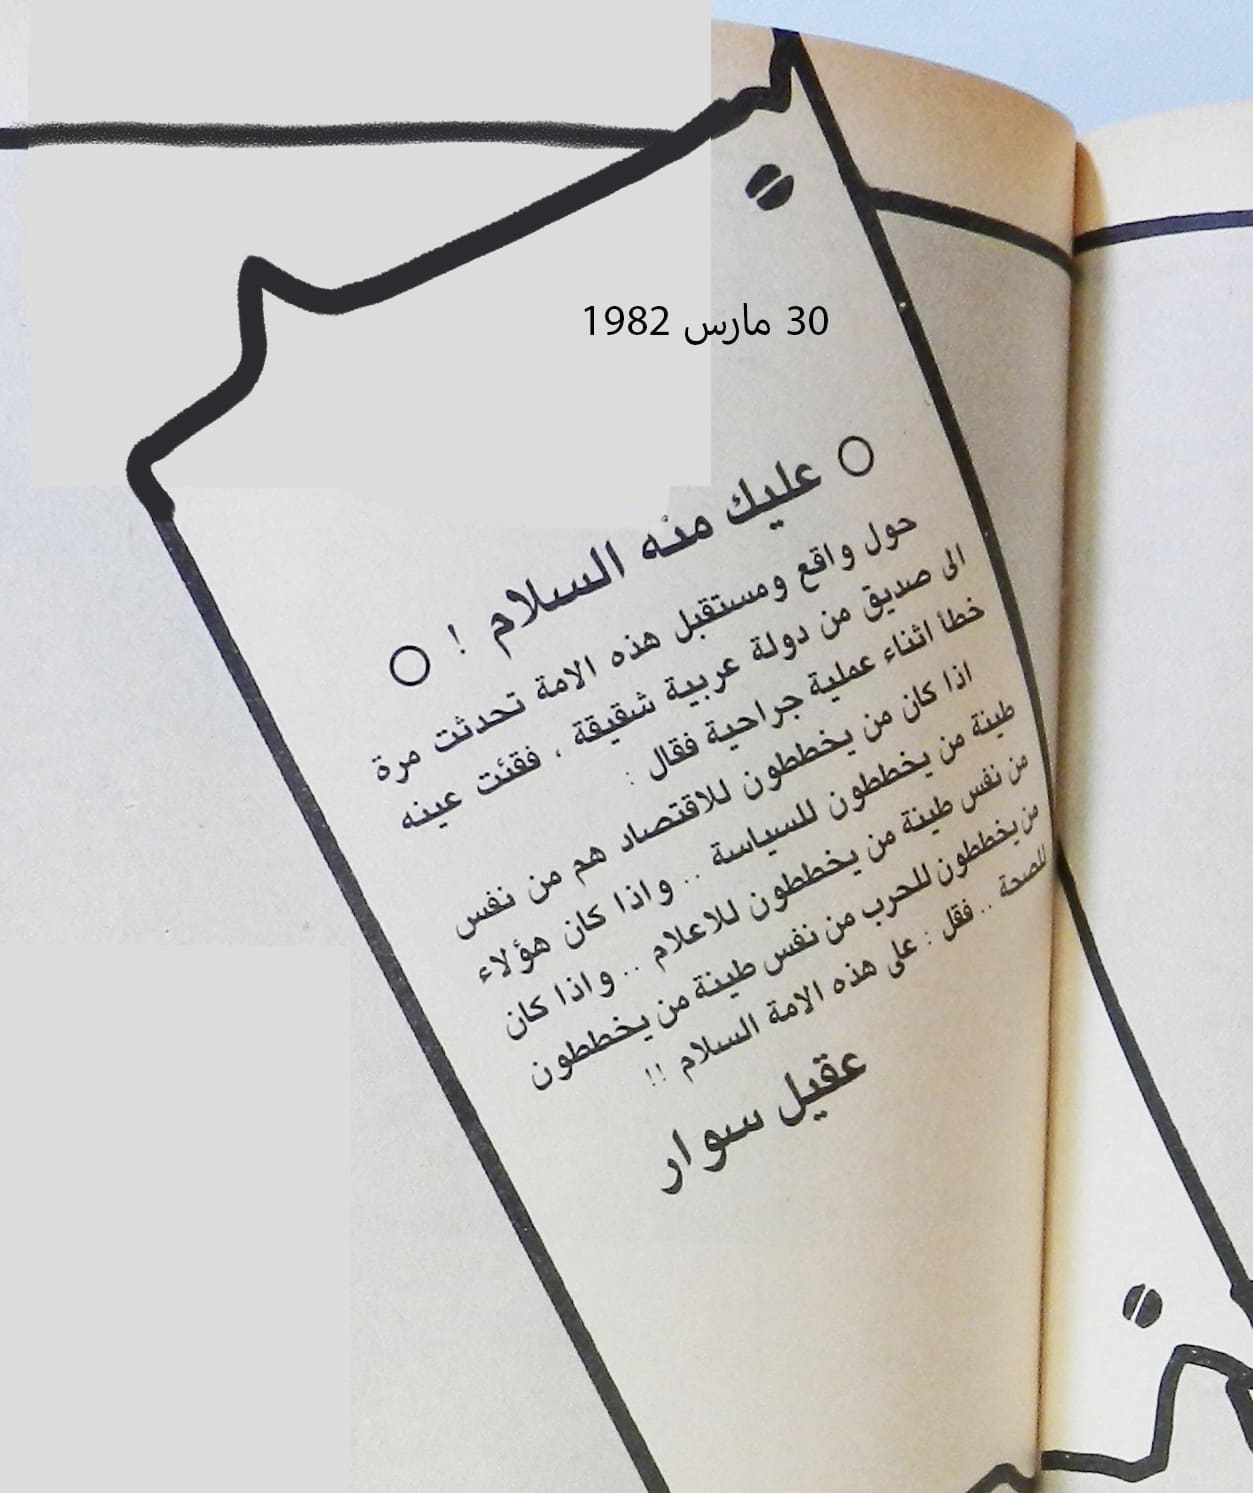 30 مارس 1982
عليك منه السلام !
حول واقع ومستقبل هذه الامة تحدثت مرة
الى صديق من دولة عربية شقيقة ، فقئت عينه
خطأ اثناء عملية جراحية فقال :
اذا كان من يخططون للاقتصاد هم من نفس
طينة من يخططون للسياسة .. واذا كان هؤلاء
من نفس طينة من يخططون للاعلام .. واذا كان
من يخططون للحرب من نفس طينة من يخططون
للصحة .. فقل : على هذه الامة السلام !!
عقيل سوار